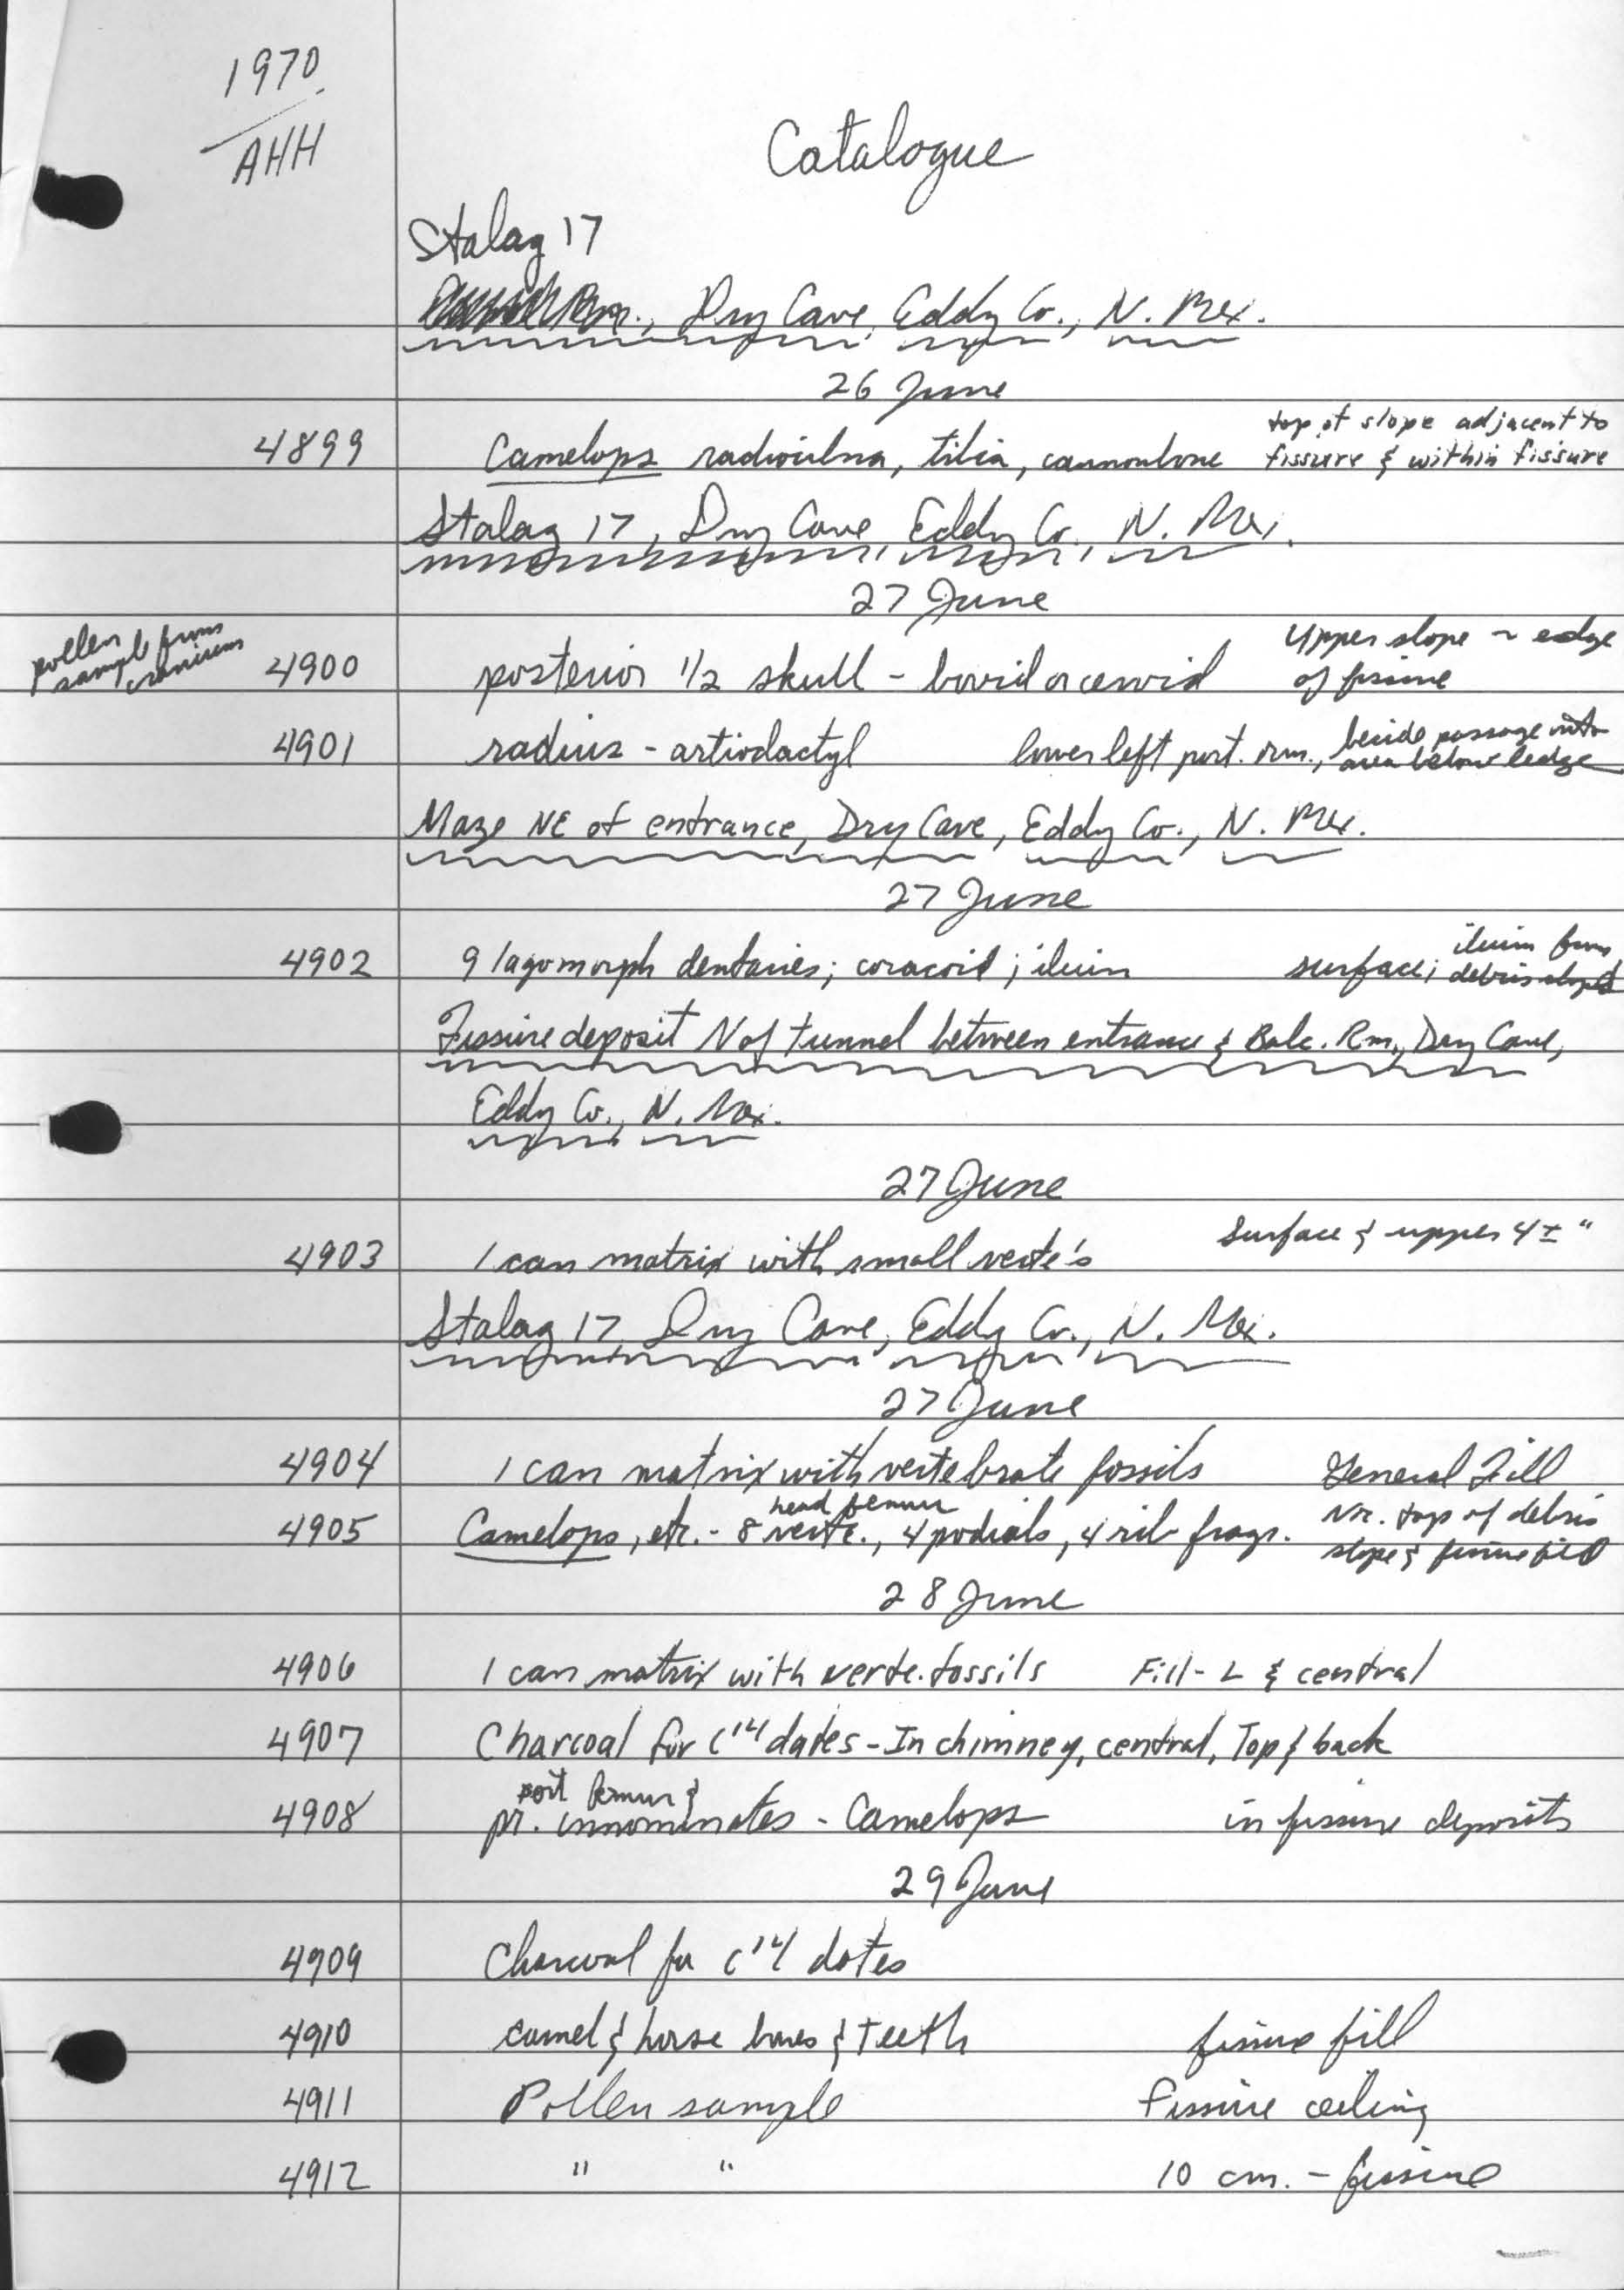 1970
AHH
Catalogue
Stalag 17
Rm., Dry Cave, Eddy Co., N. Mex.
26 June
top of slope adjacent to
4899 Camelops radioulna, tibia, cannonbone fissure & within fissure
Stalag 17, Dry Cave, Eddy Co., N. Mex.
27 June
pollen sample from cranium
4900 posterior 1/2 skull - bovid or cervid Upper slope ~ edge of fissure
4901 radius - artiodactyl lower left port. rm., beside passage into area below ledge
Maze NE of entrance, Dry Cave, Eddy Co., N. Mex.
27 June
4902 9 lagomorph dentaries; coracoid; ilium surface; ilium from debris slope
Fissure deposit N of tunnel between entrance & Balc. Rm., Dry Cave,
Eddy Co., N. Mex.
27 June
4903 1 can matrix with small verte's Surface & upper 4± "
Stalag 17, Dry Cave, Eddy Co., N. Mex.
27 June
4904 1 can matrix with vertebrate fossils General Fill
head femur
4905 Camelops, etc. - 8 verte., 4 podials, 4 rib frags. Nr. top of debris
slope & fissure fill
28 June
4906 1 can matrix with verte. fossils Fill - L & central
4907 Charcoal for C14 dates - In chimney, central, Top & back
port femur &
4908 pr. innominates - Camelops in fissure deposits
29 June
4909 Charcoal for C14 dates
4910 camel & horse bones & teeth fissure fill
4911 Pollen sample Fissure ceiling
4912 " " 10 cm. - fissure